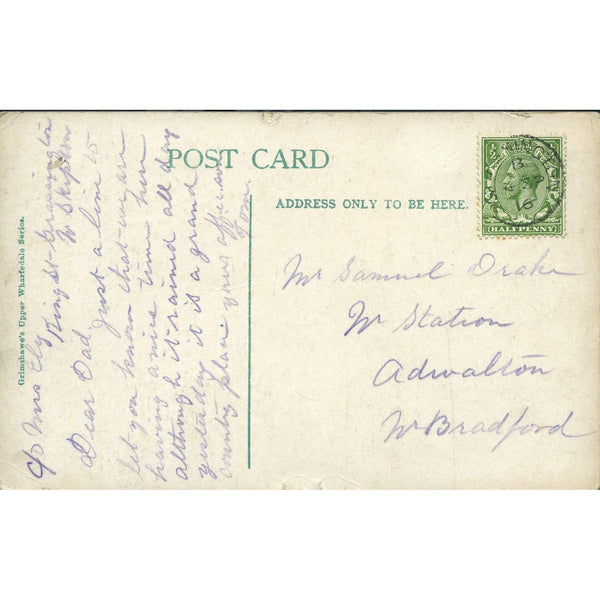 POST CARD
ADDRESS ONLY TO BE HERE.
Grimshawe's Upper Wharfedale Series.
C/o Mrs Ely
King St. Grassington
Nr Skipton
Dear Dad Just a line to
let you know that we are
having a nice time here
although it rained all day
yesterday it is a grand
country place yours affec
Tom.
Mr Samuel Drake
Nr Station
Adwalton
Nr Bradford
½
HALFPENNY
16